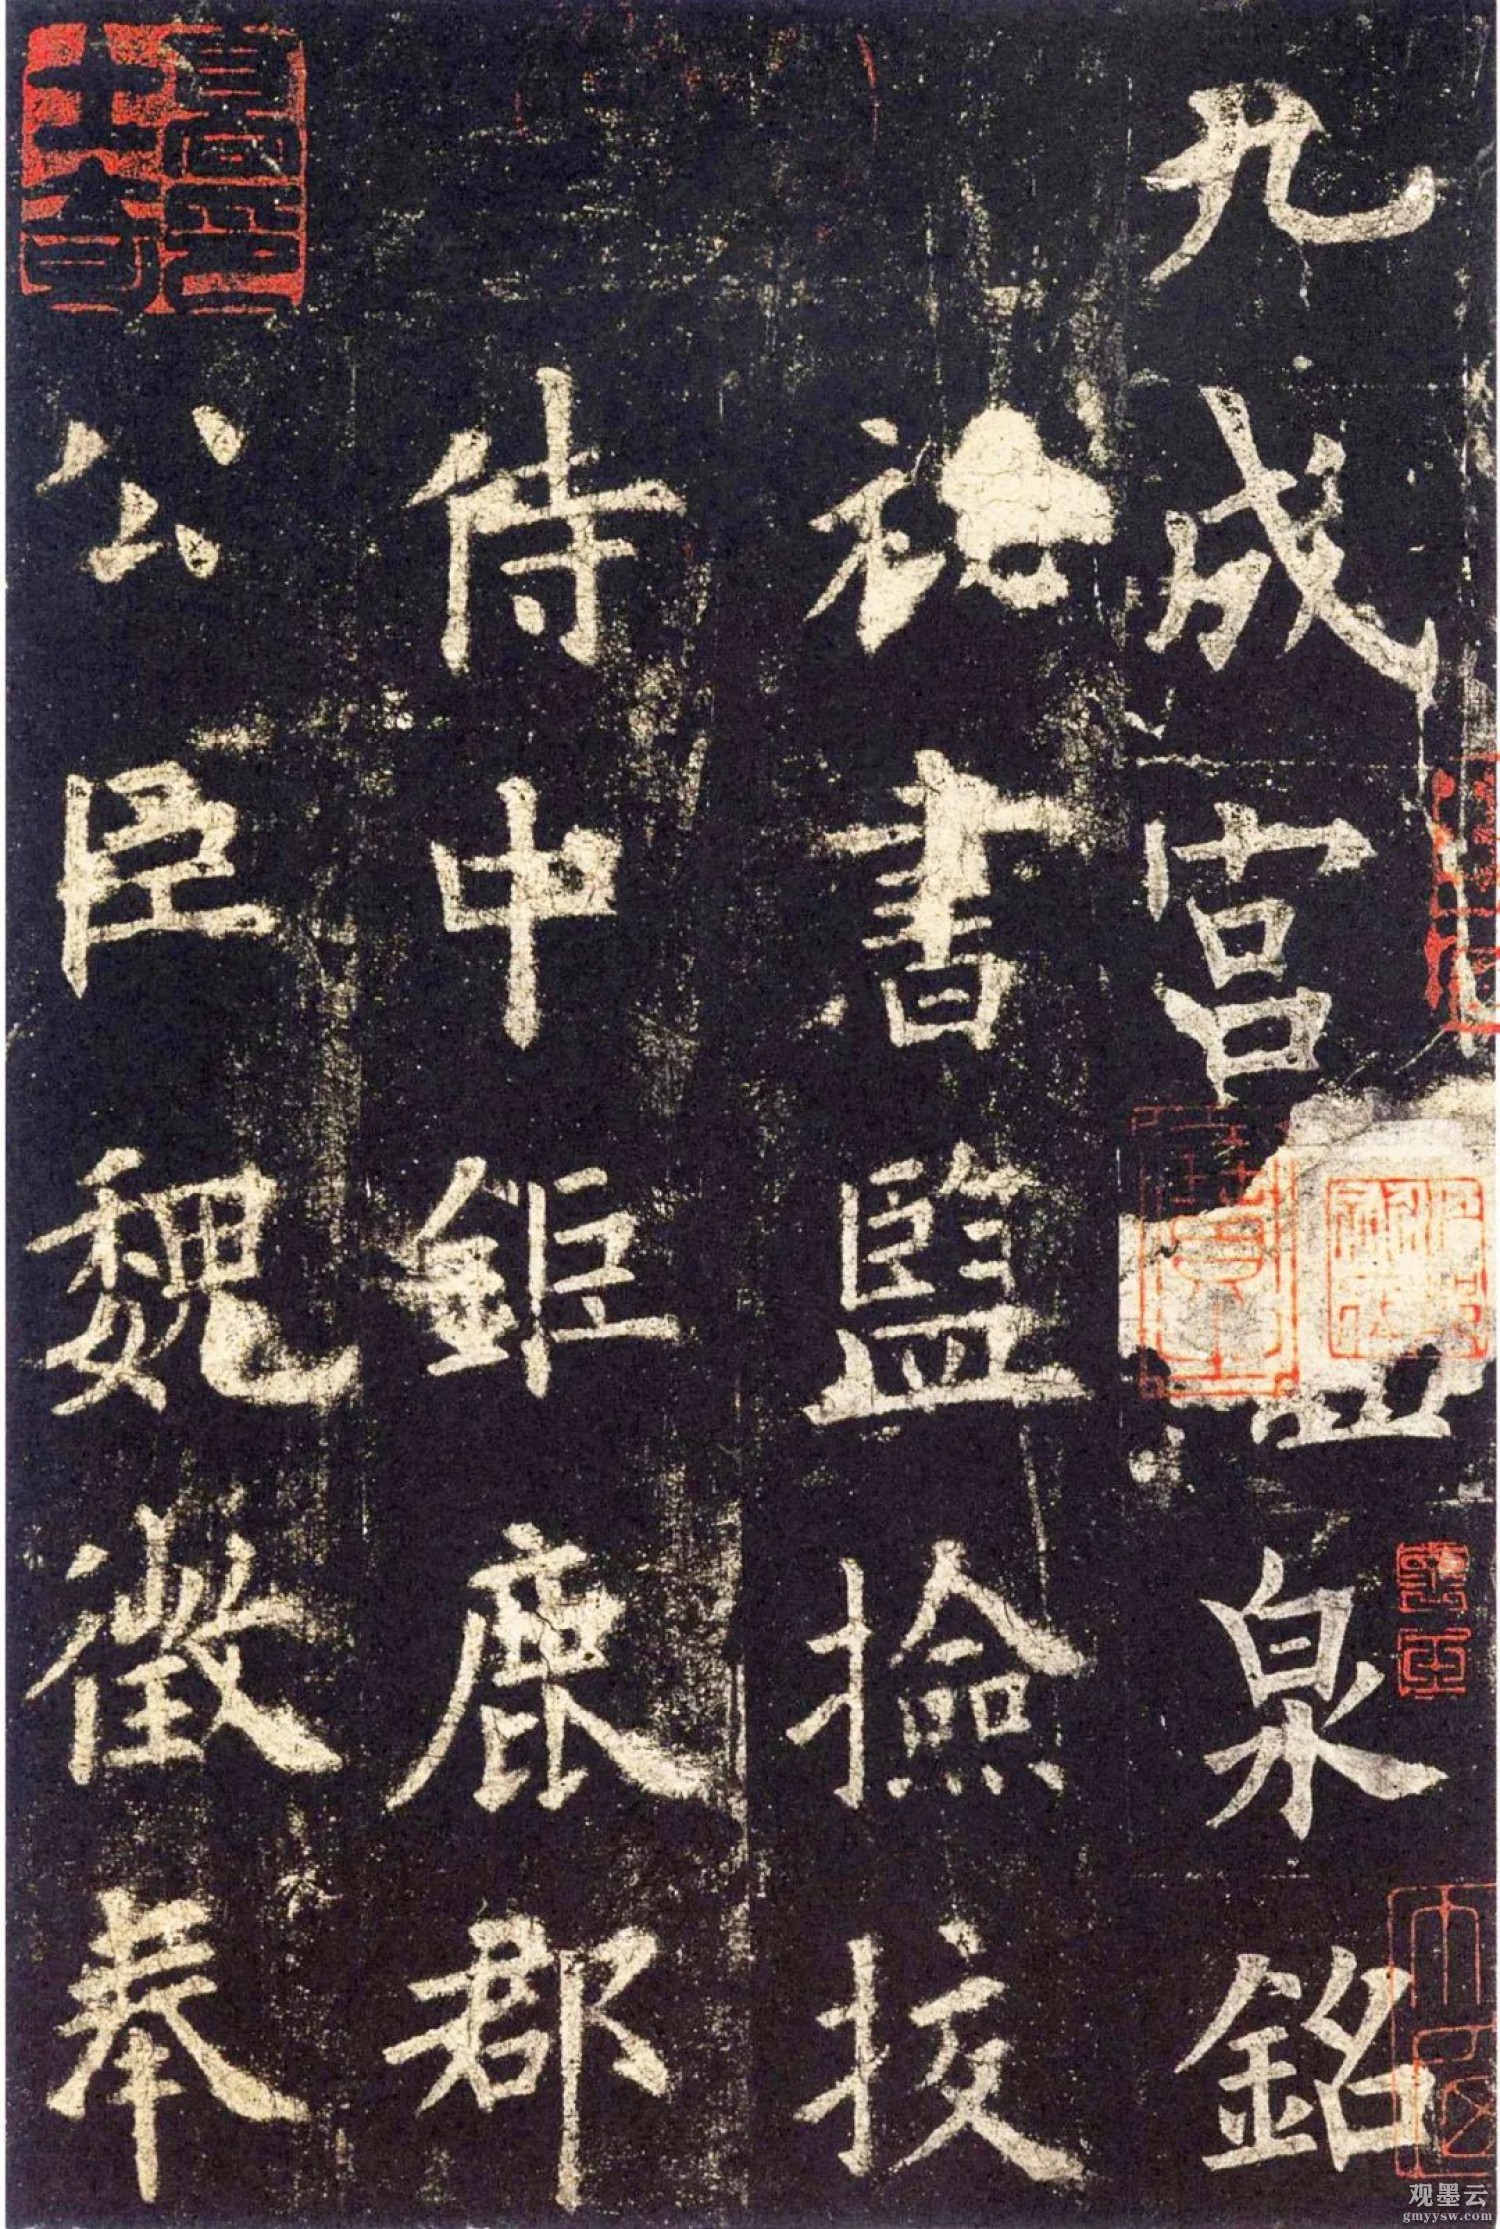 九成宮泉銘
祕書監撿挍
侍中鉅鹿郡
公臣魏徵奉
观墨云
gmyysw.com